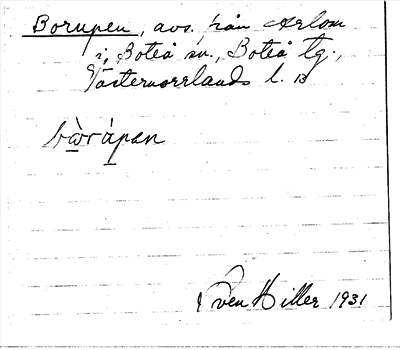 Borupen, avs. från Arlom
i, Boteå sn., Boteå tg.,
Västernorrlands l. 13
bὼrápen
Sven Hiller 1931